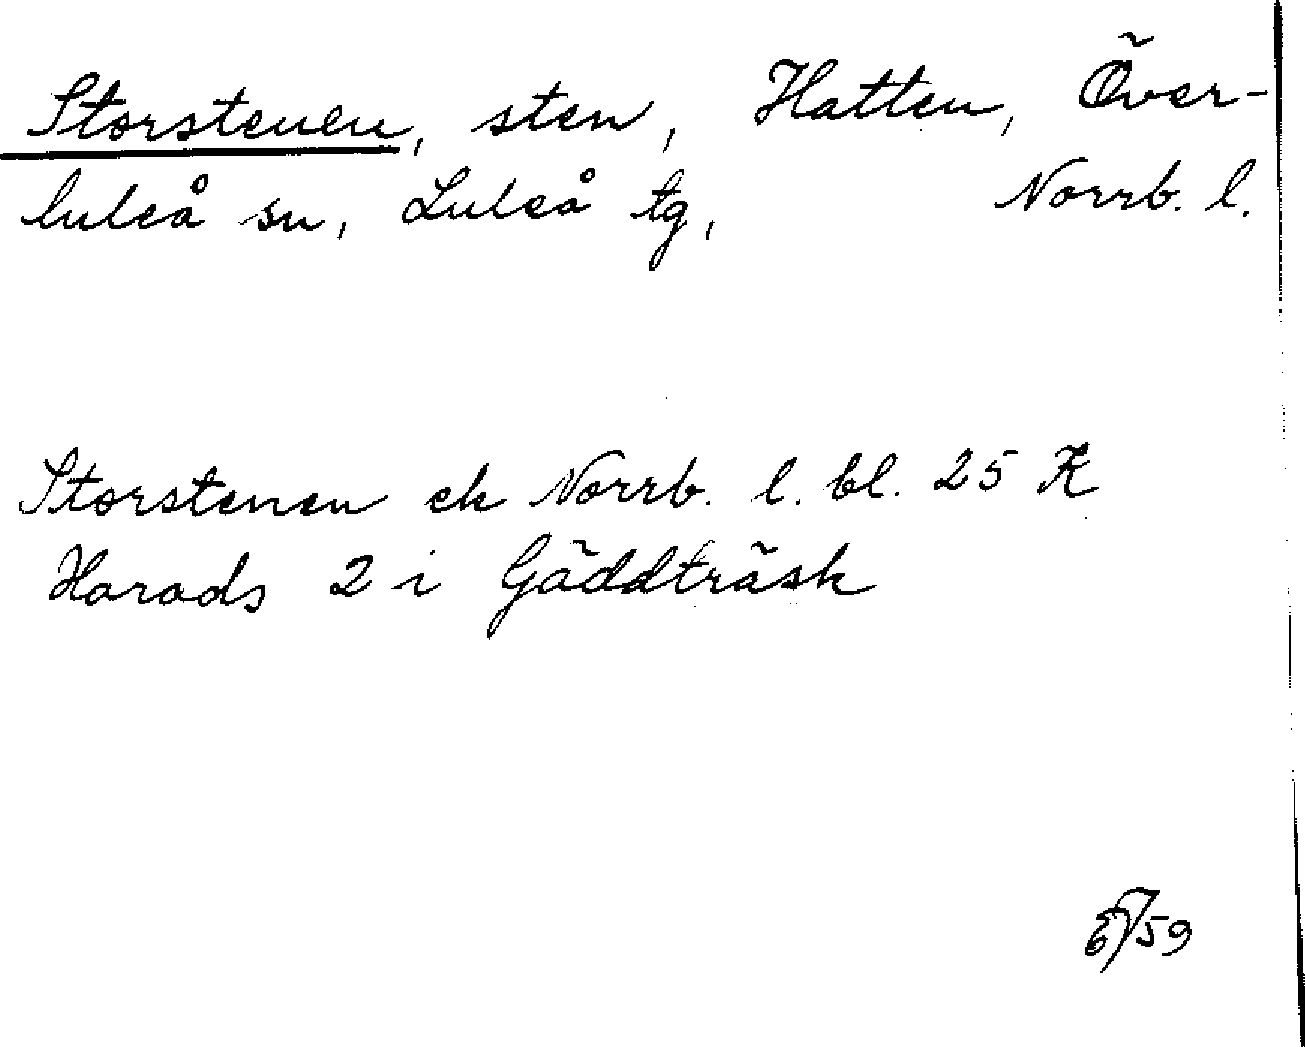 Storstenen, sten, Hatten, Över-
luleå sn, Luleå tg, Norrb. l.
Storstenen ek Norrb. l. bl. 25 K
Harads 2 i Gäddträsk